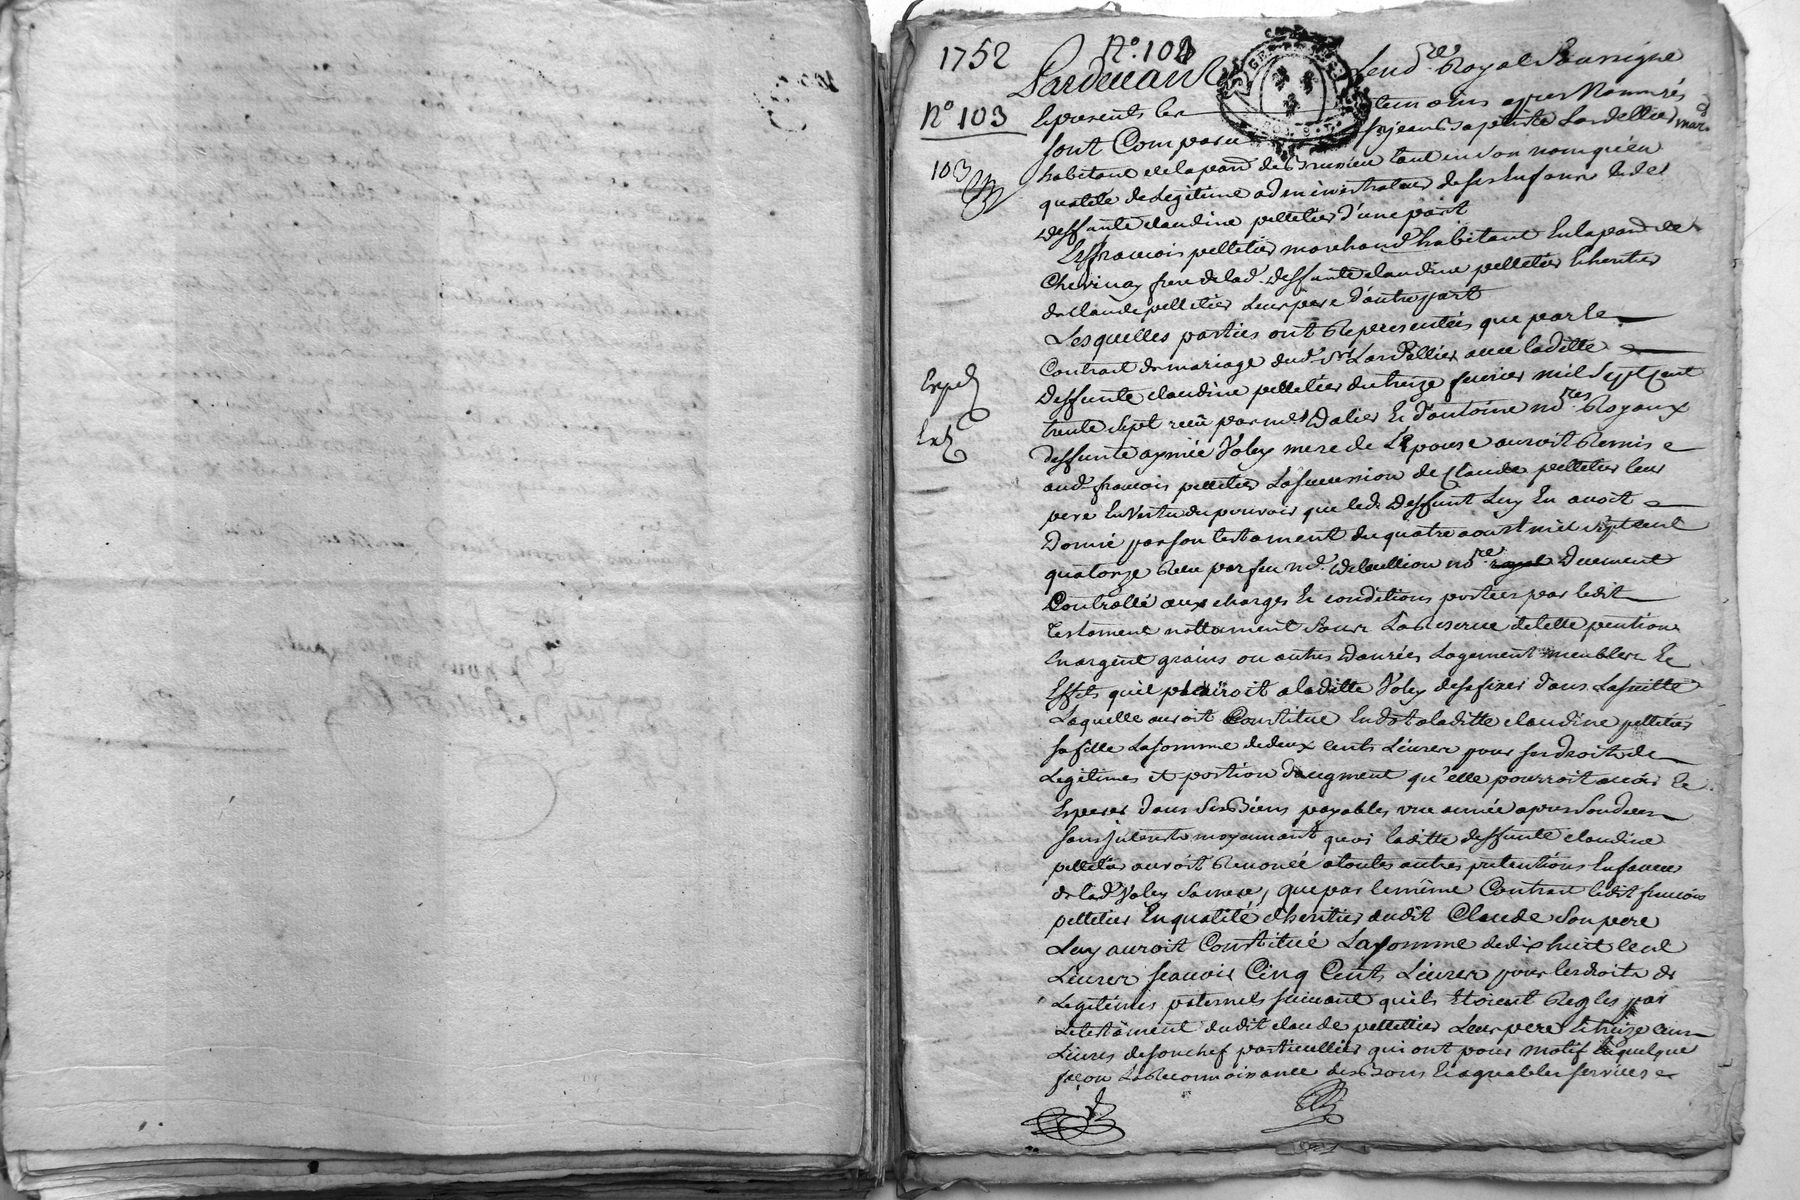 1752
N° 103
N° 103
103
Pardevant le nd.re Royal soussigné
Et presents les temoins appres Nommés
sont Comparu Sr jean Baptiste Lardellier mar.d
habitant de la par. de Brussieu tant en son nom qu'en
qualité de Legitime administrateur de ses Enfans & de
deffunte claudine pelletier d'une part
Et Sr francois pelletier marchand habitant En la par. de
Chevinay frere de lad. deffunte claudine pelletier & heritier
de claude pelletier Leur pere d'autre part
Lesquelles parties ont Representées que par le
Contrat de mariage dud. Sr Lardellier avec laditte
Deffunte claudine pelletier du treize fevrier mil Sept Cent
trente Sept reçû par mes Dalier & d'antoine nd.res Royaux
deffunte aymée Voley mere de L'Epouse auroit Remis
aud. francois pelletier La succession de Claude pelletier leur
pere En vertu du pouvoir que led. Deffunt Luy En avoit
Donné par son testament du quatre aoust mil sept cent
quatorze Receu par feu Me. nd.re Duement
Controllé aux charges & conditions portées par ledit
testament nottamment sous La Reserve de telle pention
En argent grains ou autres Danrées Logement meubles &
Effets qu'il plairoit a laditte Voley de se fixer dans La suitte
Laquelle auroit Constitué En dot a laditte claudine pelletier
sa fille La somme de deux cents Livres pour ses droits de
Legitimes et portion d'augment qu'elle pourroit avoir &
Esperer dans Ses Biens payables une année apres Son deces
sans interests moyennant quoi laditte deffunte claudine
pelletier auroit Renoncé a toutes autres pretentions En faveur
de lad. Voley Sa mere, que par le même Contrat ledit francois
pelletier En qualité d'heritier dudit Claude Son pere
Luy auroit Constitué La somme de dix huit cent
Livres scavoir Cinq Cents Livres pour les droits de
Legitimes paternels suivant qu'ils Etoient Regles par
Le testament dudit claude pelletier Leur pere & treize cents
Livres de son chef particullier qui ont pour motif En quelque
façon La Reconnoissance des Bons & agreables services
Exped
Ext